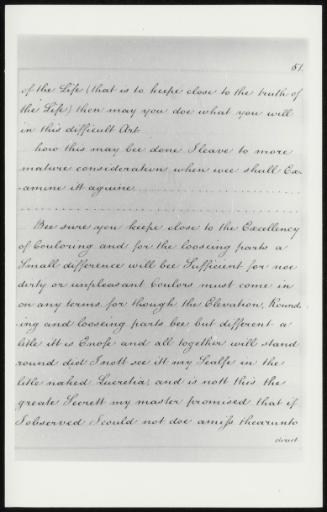 81.
of the Life (that is to keepe close to the truth of
the Life) then may you doe what you will
in this difficult Art
how this may bee done I leave to more
mature consideration when wee shall Ex-
amine itt againe
Bee sure you keepe close to the Excellency
of Couloring and for the looseing parts a
Small difference will bee Sufficient for noe
dirty or unpleasant Coulors must come in
on any terms for though the Elevation, Round-
ing and looseing parts bee but different a
litle itt is Enofe and all together will stand
round did I nott see itt my Sealfe in the
litle naked Lucretia, and is nott this the
greate Secrett my master promised that if
I observed I could not doe amiss thearunto